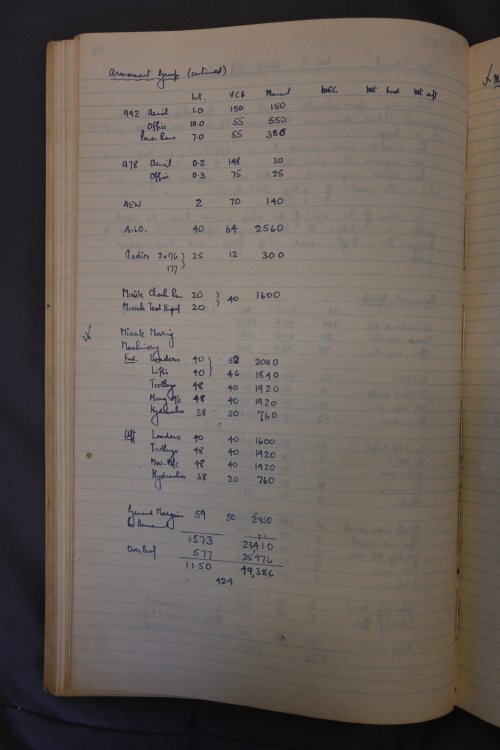 Armament Group (continued)
Wt. VCG Moment LCG Mt fwd Mt aft
992 Aerial 1.0 150 150
Office 10.0 55 550
Power Room 7.0 55 385
978 Aerial 0.2 148 30
Office 0.3 75 25
AEW 2 70 140
A.I.O. 40 64 2560
Asdics 2x176 } 25 12 300
177
Missile Check Rm 20 } 40 1600
Missile Test Equipt 20
Missile Moving
Machinery
Fwd. Loaders 40 } 52 2080
Lifts 40 46 1840
Trolleys 48 40 1920
Moving M/C 48 40 1920
Hydraulics 38 20 760
Aft Loaders 40 40 1600
Trolleys 48 40 1920
Mov. M/C 48 40 1920
Hydraulics 38 20 760
General Margin 59 50 2950
573 23,410
Overleaf 577 25976
1150 49,386
42.9